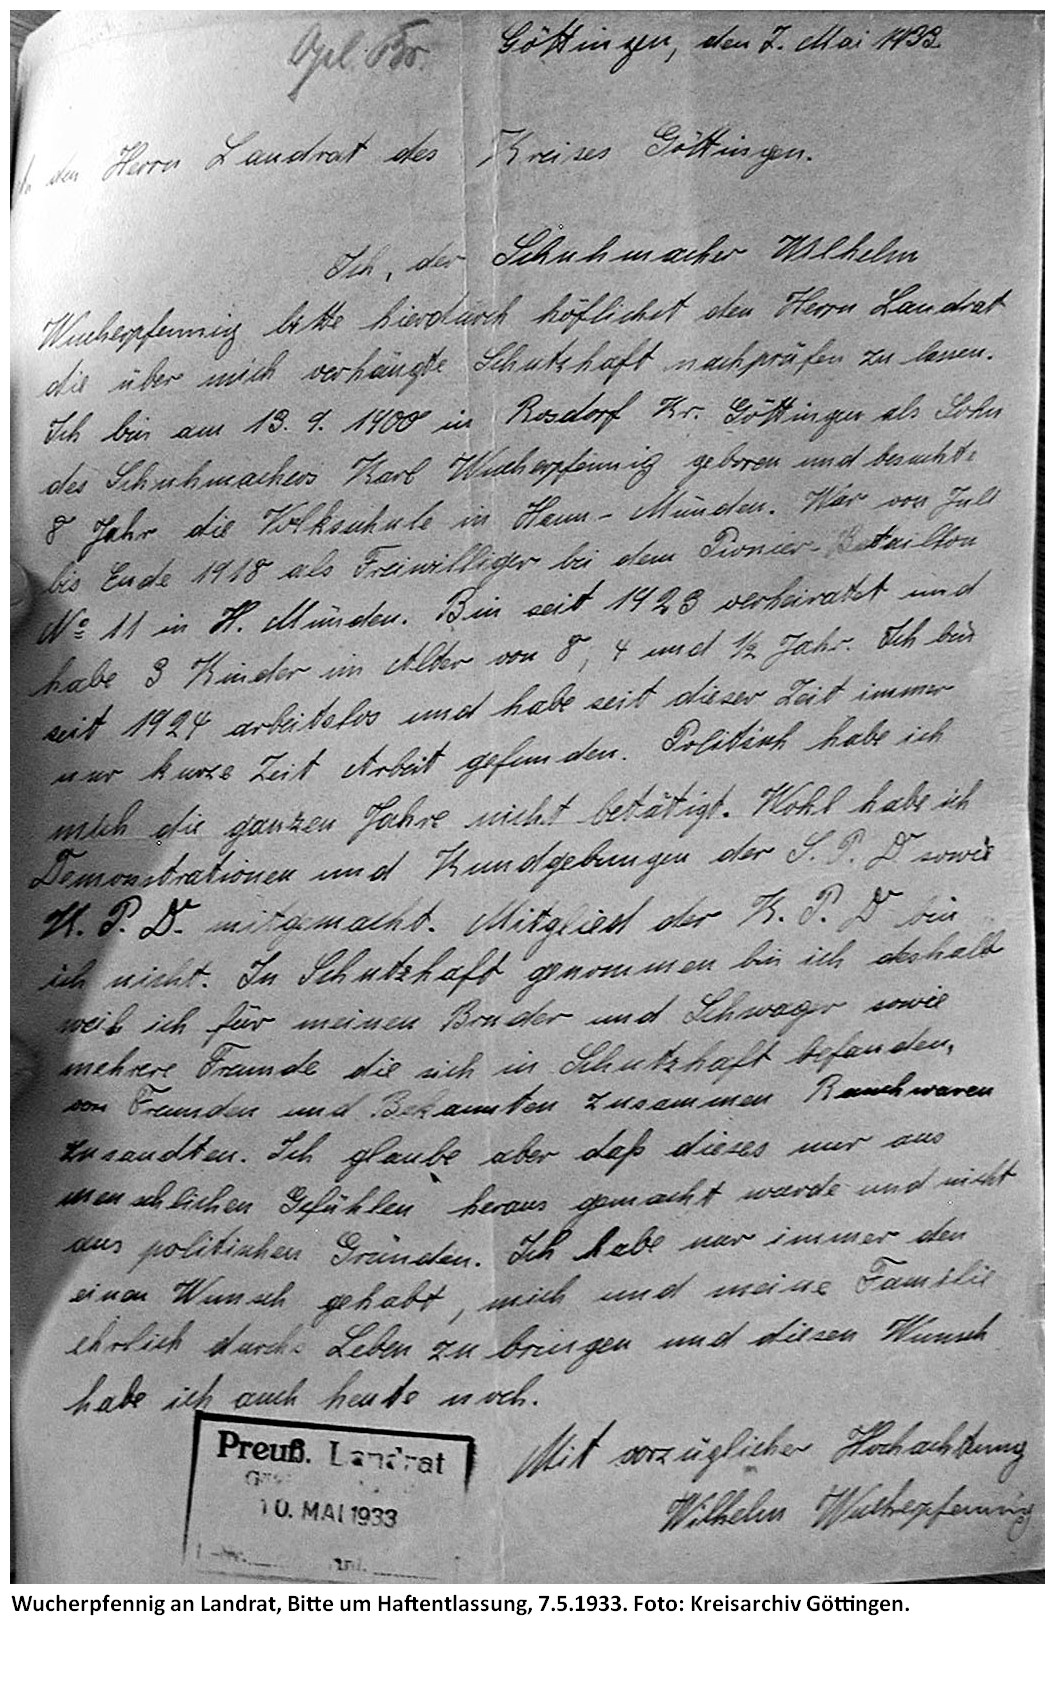 Göttingen, den 7. Mai 1933.
den Herrn Landrat des Kreises Göttingen.
Ich, der Schuhmacher Wilhelm
Wucherpfennig bitte hierdurch höflichst den Herrn Landrat
die über mich verhängte Schutzhaft nachprüfen zu lassen.
Ich bin am 13. 9. 1900 in Rosdorf Kr. Göttingen als Sohn
des Schuhmachers Karl Wucherpfennig geboren und besuchte
8 Jahr die Volksschule in Hann-Münden. War von Juli
bis Ende 1918 als Freiwilliger bei dem Pionier-Batailton
No 11 in H. Münden. Bin seit 1923 verheiratet und
habe 3 Kinder im Alter von 8, 4 und 1/2 Jahr. Ich bin
seit 1924 arbeitslos und habe seit dieser Zeit immer
nur kurze Zeit Arbeit gefunden. Politisch habe ich
mich die ganzen Jahre nicht betätigt. Wohl habe ich
Demonstrationen und Kundgebungen der S. P. D sowie
K. P. D. mitgemacht. Mitglied der K. P. D bin
ich nicht. In Schutzhaft genommen bin ich deshalb
weil ich für meinen Bruder und Schwager sowie
mehrere Freunde die sich in Schutzhaft befanden,
von Freunden und Bekannten zusammen Rauchwaren
zusandten. Ich glaube aber daß dieses nur aus
menschlichen Gefühlen heraus gemacht wurde und nicht
aus politischen Gründen. Ich habe nur immer den
einen Wunsch gehabt, mich und meine Familie
ehrlich durchs Leben zu bringen und diesen Wunsch
habe ich auch heute noch.
Mit vorzüglicher Hochachtung
Wilhelm Wucherpfennig
Preuß. Landrat
10. MAI 1933
Wucherpfennig an Landrat, Bitte um Haftentlassung, 7.5.1933. Foto: Kreisarchiv Göttingen.